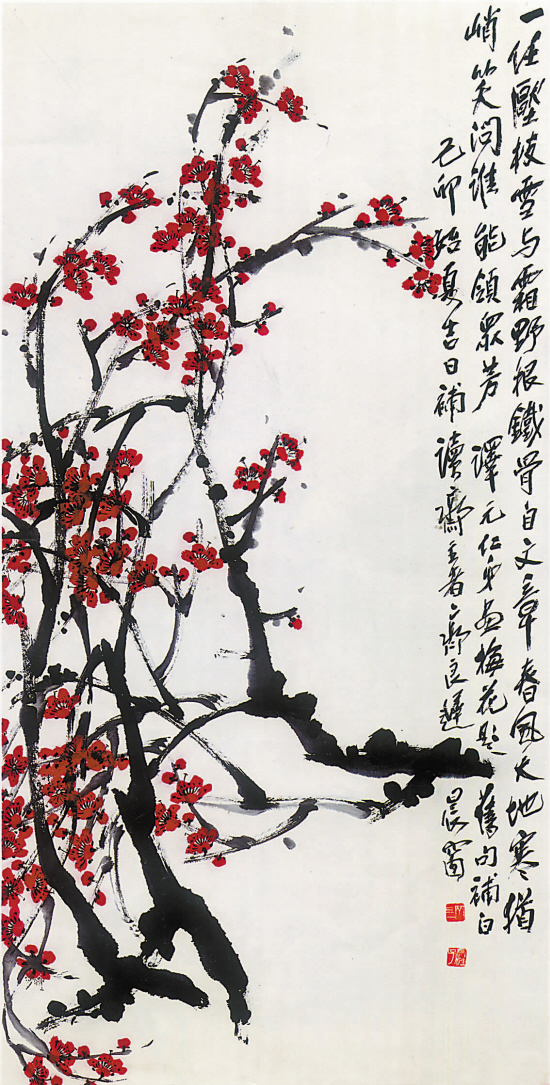 一任壓枝雪与霜野根鐵骨自文章春風大地寒猶
峭笑问誰能領眾芳 澤元仁弟画梅花題舊句補白
己卯始夏吉日補讀齋主者齊良遲晨窗